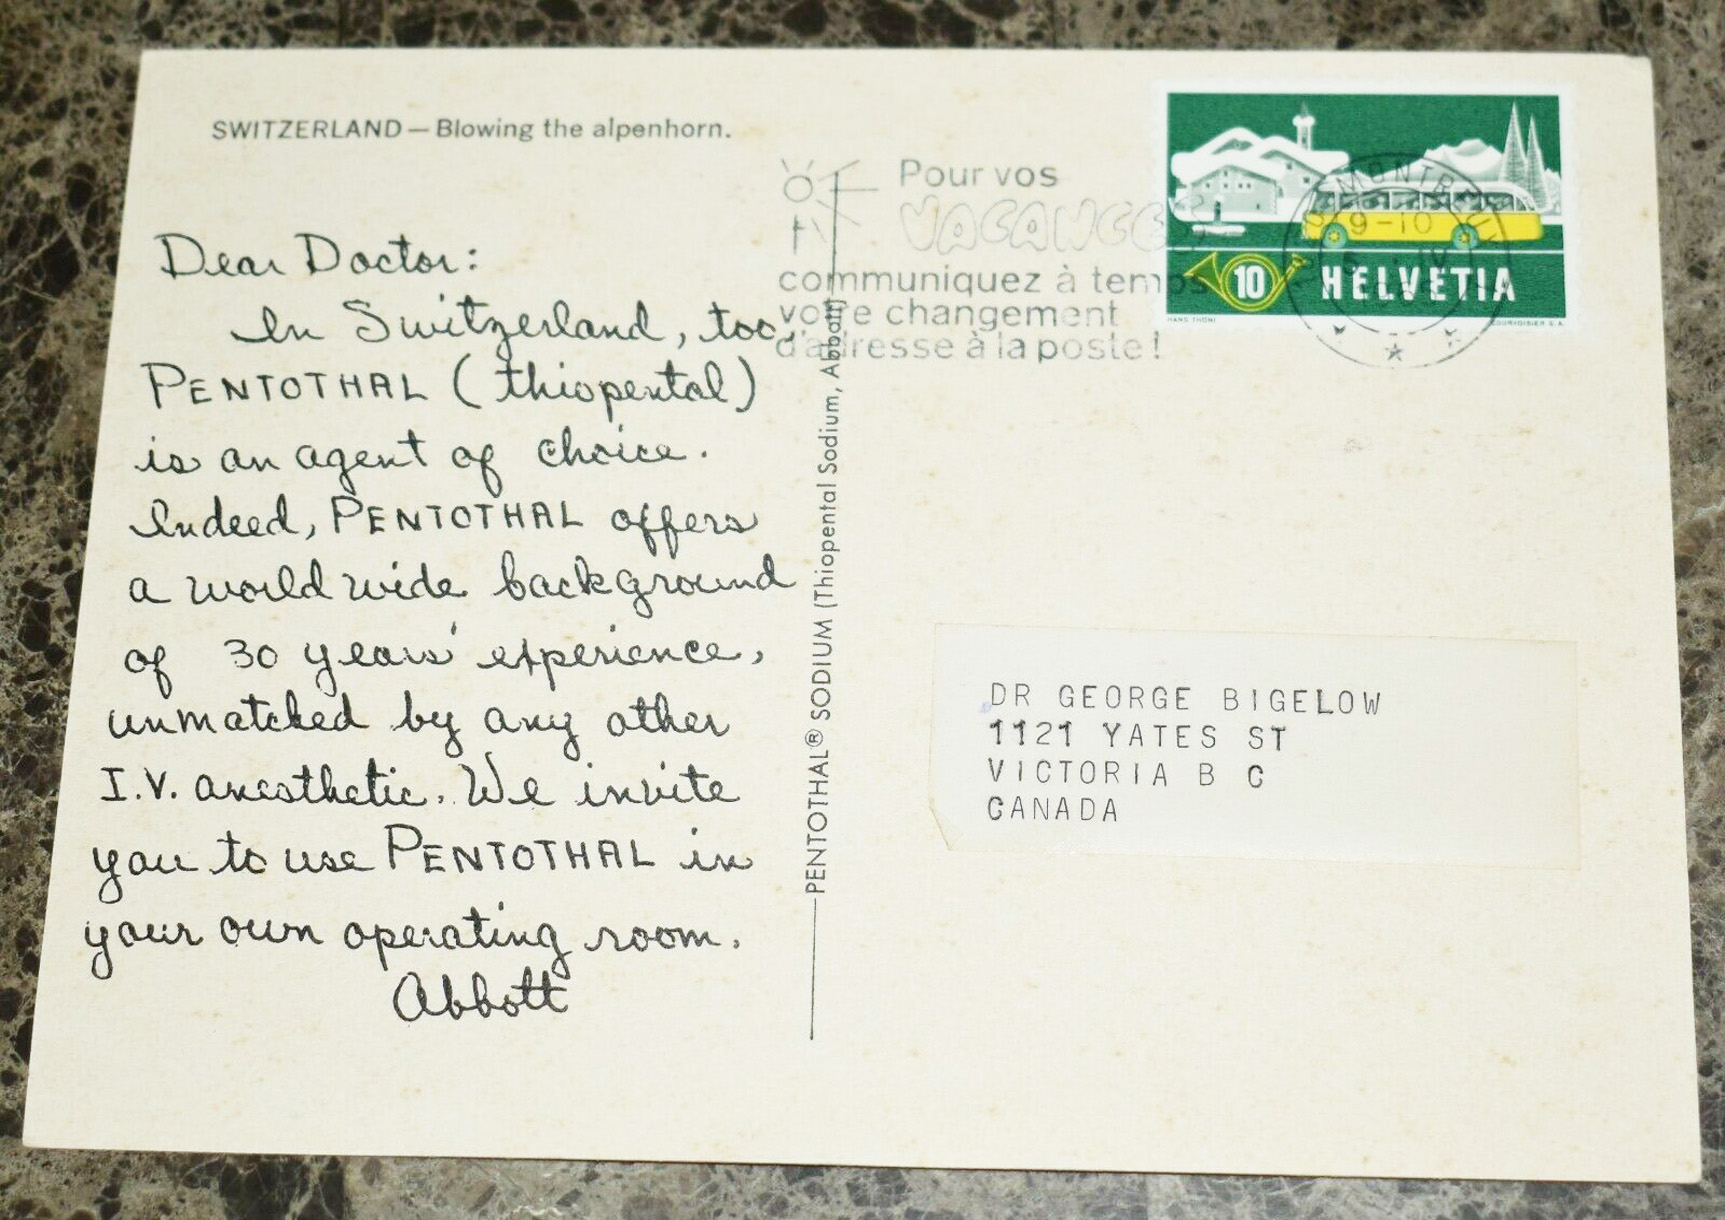 SWITZERLAND — Blowing the alpenhorn.
Dear Doctor:
In Switzerland, too,
PENTOTHAL (thiopental)
is an agent of choice.
Indeed, PENTOTHAL offers
a world wide background
of 30 years' experience,
unmatched by any other
I.V. anesthetic. We invite
you to use PENTOTHAL in
your own operating room.
Abbott
PENTOTHAL® SODIUM (Thiopental Sodium, Abbott)
Pour vos
VACANCES
communiquez à temps
votre changement
d'adresse à la poste!
MONTREUX
9-10
IV
10 HELVETIA
HANS THÖNI
COURVOISIER S.A.
DR GEORGE BIGELOW
1121 YATES ST
VICTORIA B C
CANADA